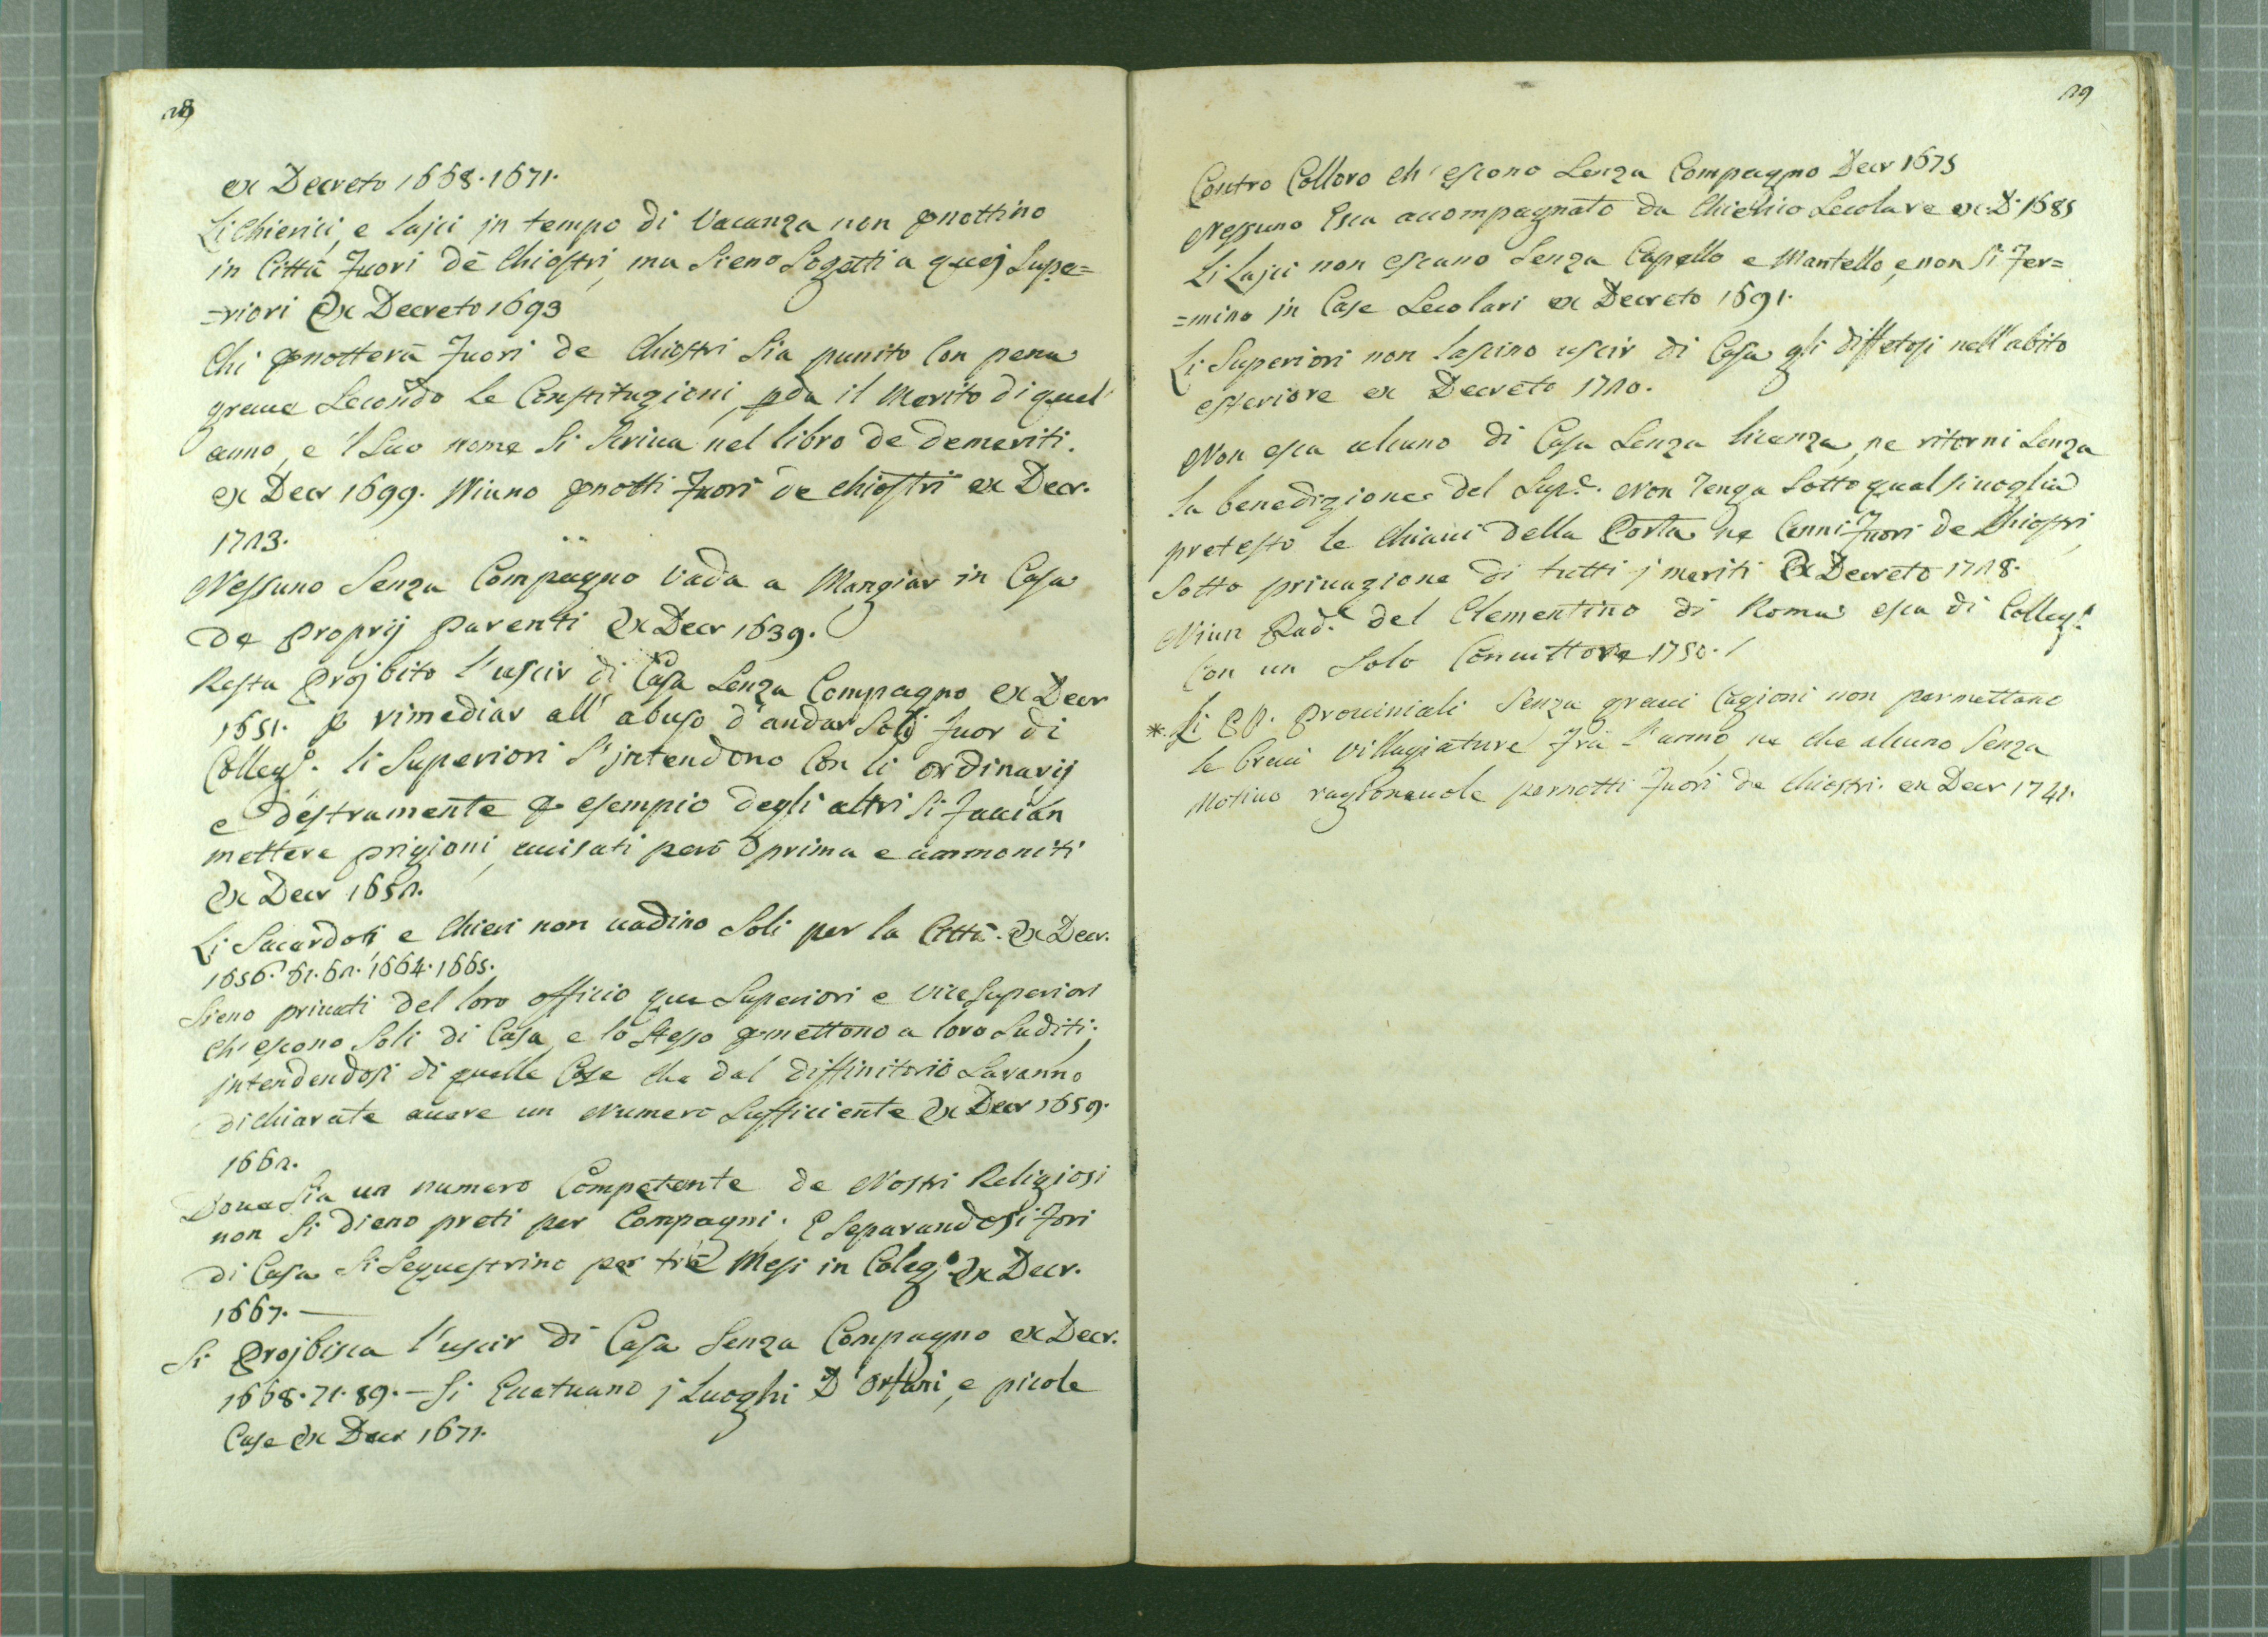 28
ex Decreto 1668. 1671.
Li Chierici, e lajci jn tempo di Vacanza non pnottino
in Città fuori de Chiostri, ma sieno Sogetti a quej Supe=
=riori Ex Decreto 1693
Chi pnotterà fuori de Chiostri sia punito Con pena
graue Secondo le Constituzioni, pda il Merito di quel
anno, e 'l suo nome si scriua nel libro de demeriti.
ex Decr 1699. Niuno pnotti fuori de chiostri ex Decr.
1723.
Nessuno Senza Compagno Vada a Mangiar in Casa
de proprij parenti Ex Decr 1639.
Resta projbito l'uscir di Casa Senza Compagno ex Decr
1651. p rimediar all' abuso d'andar Solj fuor di
Collegio. li Superiori s'jntendono Con li ordinarij
e destramente p esempio degli altri si faccian
mettere prigioni, auuisati però prima e ammoniti
Ex Decr 1652.
Li Sacerdoti e Chieri non uadino Soli per la Città. Ex Decr.
1656. 61. 62. 1664. 1665.
Sieno priuati del loro officio que Superiori e ViceSuperiori
ch' escono Soli di Casa, e lo stesso pmettono a loro Suditi;
jntendendosi di quelle Case che dal diffinitorio Saranno
dichiarate auere un Numero Sufficiente Ex Decr 1659.
1662.
Doue sia un numero Competente de Nostri Religiosi
non si dieno preti per Compagni. E separandosi fori
di Casa si sequestrino per tre Mesi in Colego Ex Decr.
1667. —
Si projbisca l'uscir di Casa Senza Compagno ex Decr.
1668. 71. 89. — Si Ecetuano j Luoghi D'Orfani, e picole
Case Ex Decr 1671.
29
Contro Colloro ch' escono Senza Compagno Decr 1675
Nessuno Esca accompagnato da Chierico Secolare ex D. 1685
Li Lajci non escano Senza Capello e Mantello, e non si fer=
=mino jn Case Secolari ex Decreto 1691.
Li Superiori non lascino uscir di Casa gli diffetosi nell'abito
esteriore ex Decreto 1720.
Non esca alcuno di Casa Senza licenza, ne ritorni Senza
la benedizione del Supe. Non tenga Sotto qualsiuoglia
pretesto le Chiaui della Porta ne Cenni fuori de Chiostri,
Sotto priuazione di tutti j meriti Ex Decreto 1728.
Niun Pade. del Clementino di Roma esca di Collego.
Con un Solo Conuittore 1750.
* Li PP. Prouinciali Senza graui Cagioni non permettano
le breui villagiature frà l'anno, ne che alcuno Senza
Motiuo ragioneuole pernotti fuori de Chiostri. ex Decr 1741.